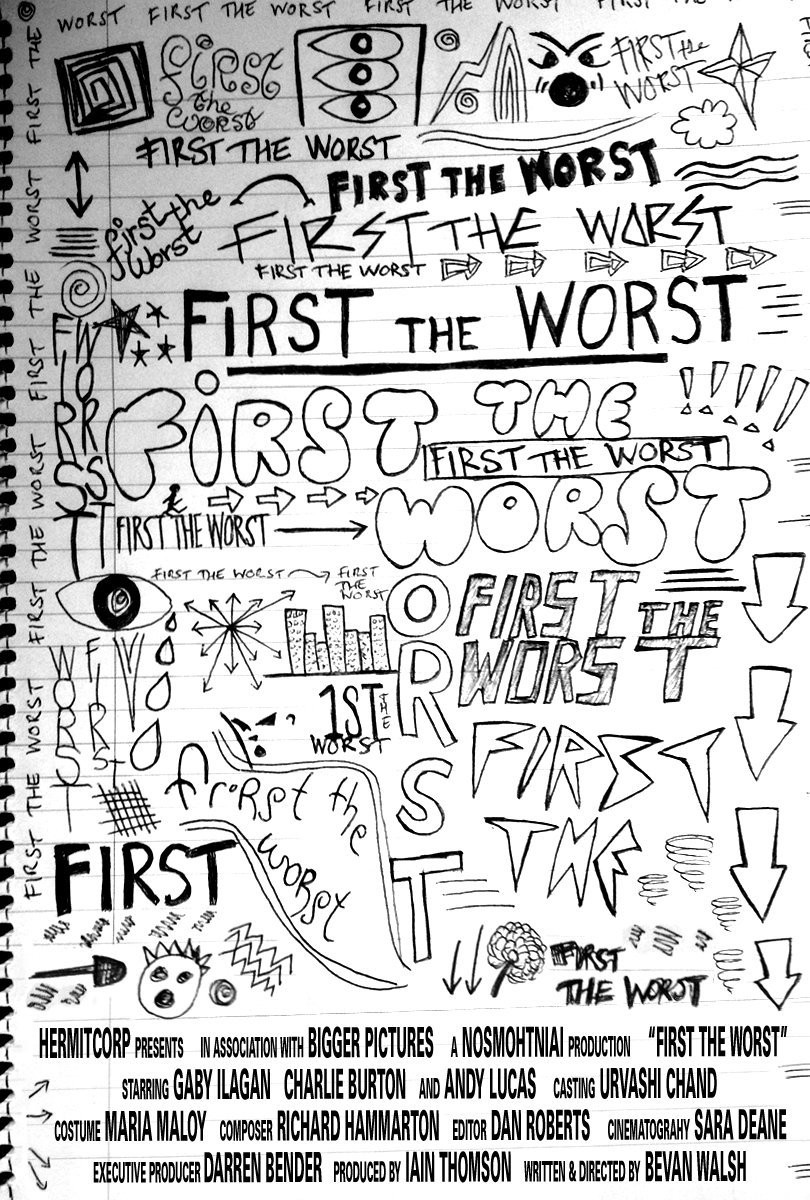 FIRST THE WORST FIRST THE WORST FIRST THE WORST FIRST THE
FIRST THE WORST FIRST THE WORST FIRST THE WORST FIRST THE WORST FIRST THE
First
the
Worst
FIRST the
WORST
FIRST THE WORST
FIRST THE WORST
first the
worst
FIRST THE WORST
FIRST THE WORST
FIRST THE WORST
FIRST
WORST
FiRST THE
FIRST THE WORST
WORST
FIRST THE WORST
FIRST THE WORST
FIRST
THE
WORST
ORST
FIRST THE
WORST
WORST
FIRST
1ST THE
WORST
FIRST
THE
first the
worst
FIRST
FIRST
THE WORST
HERMITCORP PRESENTS IN ASSOCIATION WITH BIGGER PICTURES A NOSMOHTNIAI PRODUCTION "FIRST THE WORST"
STARRING GABY ILAGAN CHARLIE BURTON AND ANDY LUCAS CASTING URVASHI CHAND
COSTUME MARIA MALOY COMPOSER RICHARD HAMMARTON EDITOR DAN ROBERTS CINEMATOGRAHY SARA DEANE
EXECUTIVE PRODUCER DARREN BENDER PRODUCED BY IAIN THOMSON WRITTEN & DIRECTED BY BEVAN WALSH